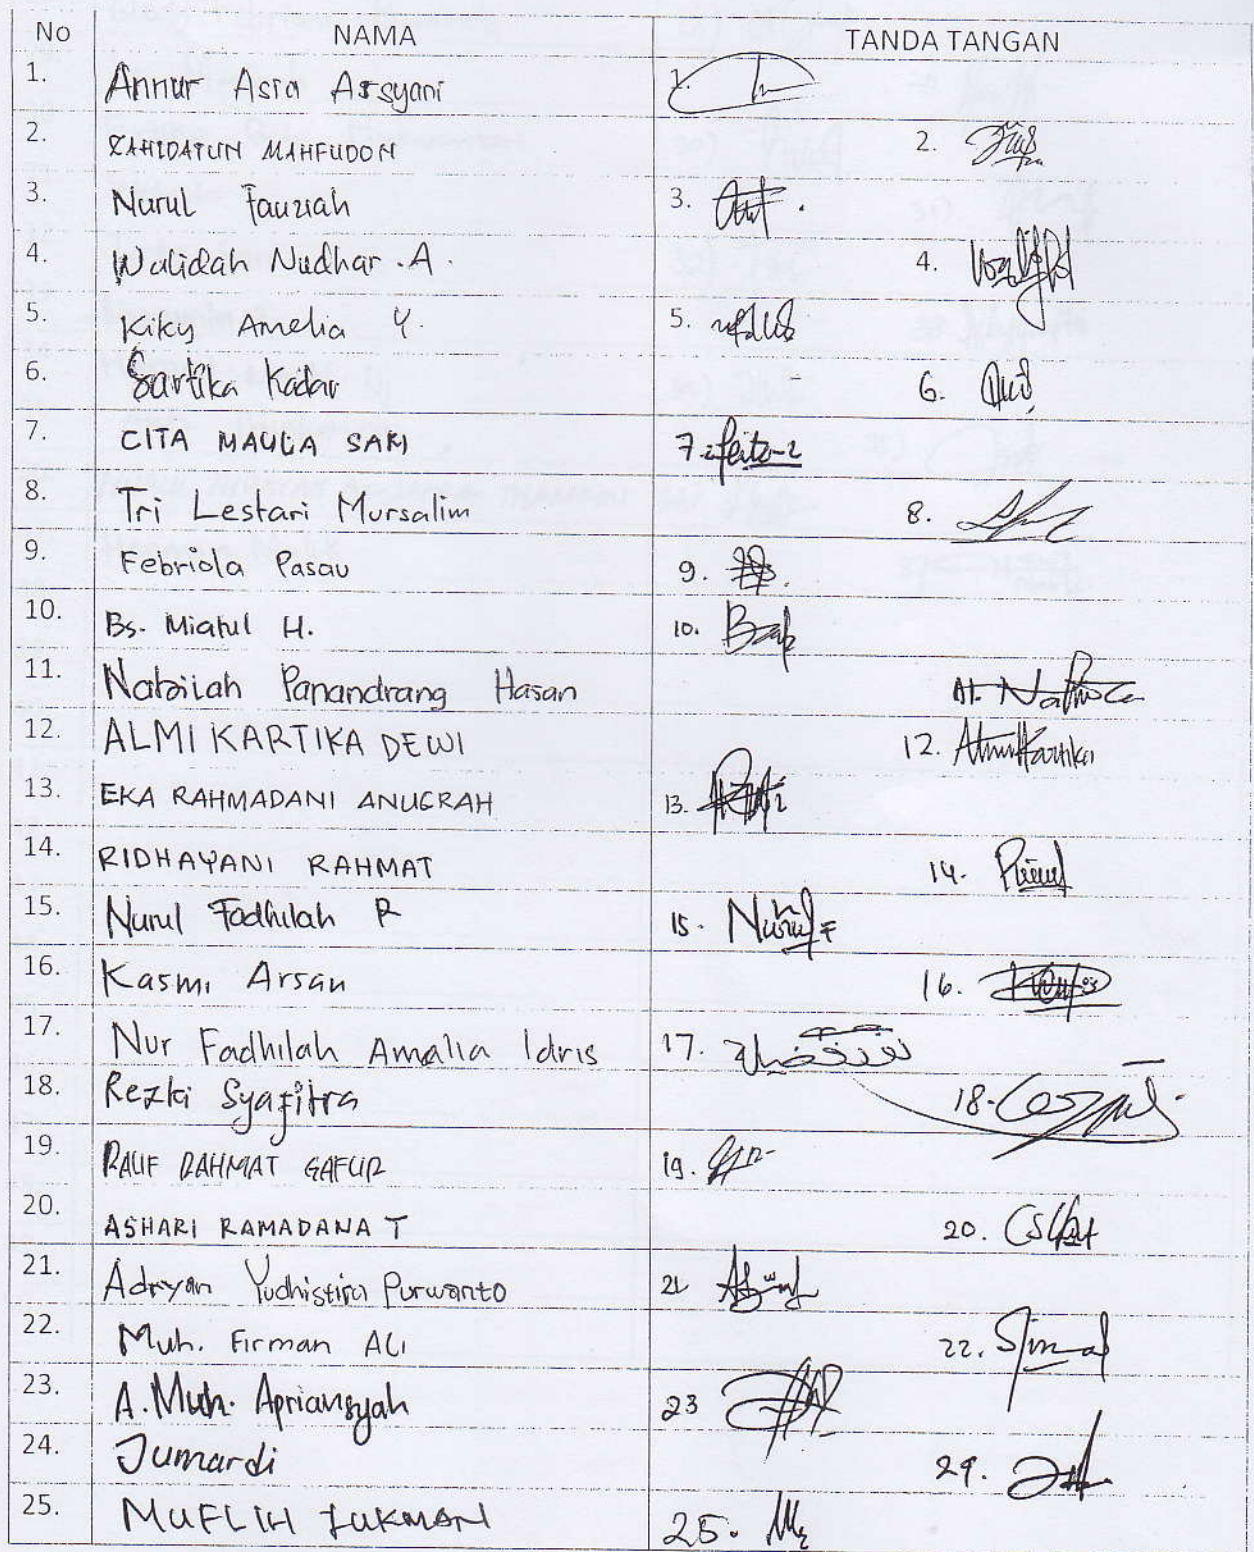 No NAMA TANDA TANGAN
1. Annur Asra Arsyani 1.
2. ZAHIDATUN MAHFUDOH 2.
3. Nurul Fauziah 3.
4. Walidah Nudhar .A. 4.
5. Kiky Amelia Y. 5.
6. Sartika Kadar 6.
7. CITA MAULA SARI 7.
8. Tri Lestari Mursalim 8.
9. Febriola Pasau 9.
10. Bs. Miatul H. 10.
11. Nabilah Panandrang Hasan 11.
12. ALMI KARTIKA DEWI 12. Almi Kartika
13. EKA RAHMADANI ANUGRAH 13.
14. RIDHAYANI RAHMAT 14.
15. Nurul Fadhilah R 15. Nurul F
16. Kasmi Arsan 16.
17. Nur Fadhilah Amalia Idris 17.
18. Rezki Syafitra 18.
19. RAUF RAHMAT GAFUR 19.
20. ASHARI RAMADANA T 20.
21. Adryan Yudhistira Purwanto 21
22. Muh. Firman Ali 22.
23. A. Muh. Apriansyah 23
24. Jumardi 24.
25. MUFLIH LUKMAN 25.